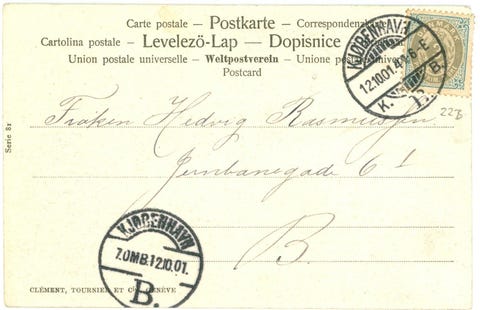 Carte postale – Postkarte – Correspondenzkarte
Cartolina postale – Levelező-Lap – Dopisnice
Union postale universelle – Weltpostverein – Unione postale
Postcard
KJØBENHAVN
12.10.01. 4-6 E
K. B.
Serie 81
Frøken Hedvig Rasmussen
Jernbanegade 6 1
B.
228
KJØBENHAVN
7.OMB.12.10.01.
B.
CLÉMENT, TOURNIER ET Cie, GENÈVE